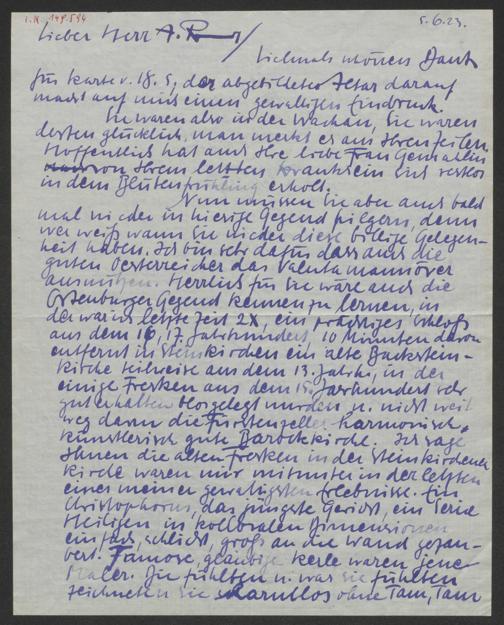 I.N. 149.594
5.6.23.
Lieber Herr A. R
Vielmals meinen Dank
für Karte v. 18.5, der abgebildete Altar darauf
macht auf mich einen gewaltigen Eindruck.
Sie waren also in der Wachau, Sie waren
dorten glücklich, man merkt es aus Ihren Zeilen.
Hoffentlich hat auch Ihre liebe Frau Gemahlin
von Ihrem letzten Kranksein sich restlos
in dem Blütenfrühling erholt.
Nun müssen Sie aber auch bald
mal wieder in hiesige Gegend pilgern, denn
wer weiß wann Sie wieder diese billige Gelegen-
heit haben. Ich bin sehr dafür dass auch die
guten Oesterreicher das Valuta manöver
ausnützen. Herrlich für Sie wäre auch die
Ortenburger Gegend kennen zu lernen, in
der war ich letzte Zeit 2X, ein prächtiges Schloß
aus dem 16, 17. Jahrhundert, 10 Minuten davon
entfernt in Steinkirchen ein alte Backstein-
kirche teilweise aus dem 13. Jahrh., in der
einige Fresken aus dem 15. Jahrhundert sehr
gut erhalten blosgelegt wurden, u. nicht weit
weg davon die Fürstenzeller harmonisch,
künstlerisch gute Barockkirche. Ich sage
Ihnen die alten Fresken in der Steinkirchener
Kirche waren mir mitunter in der letzten
eines meiner gewaltigsten Erlebnisse. Ein
Christophorus, das jüngste Gericht, ein Serie
Heiligen in kollosalen Dimensionen
einfach, schlicht, groß an die Wand gezau-
bert. Famose, gläubige Kerle waren jene
Maler. Sie fühlten u. was sie fühlten
zeichneten sie skrupellos ohne Tam, Tam